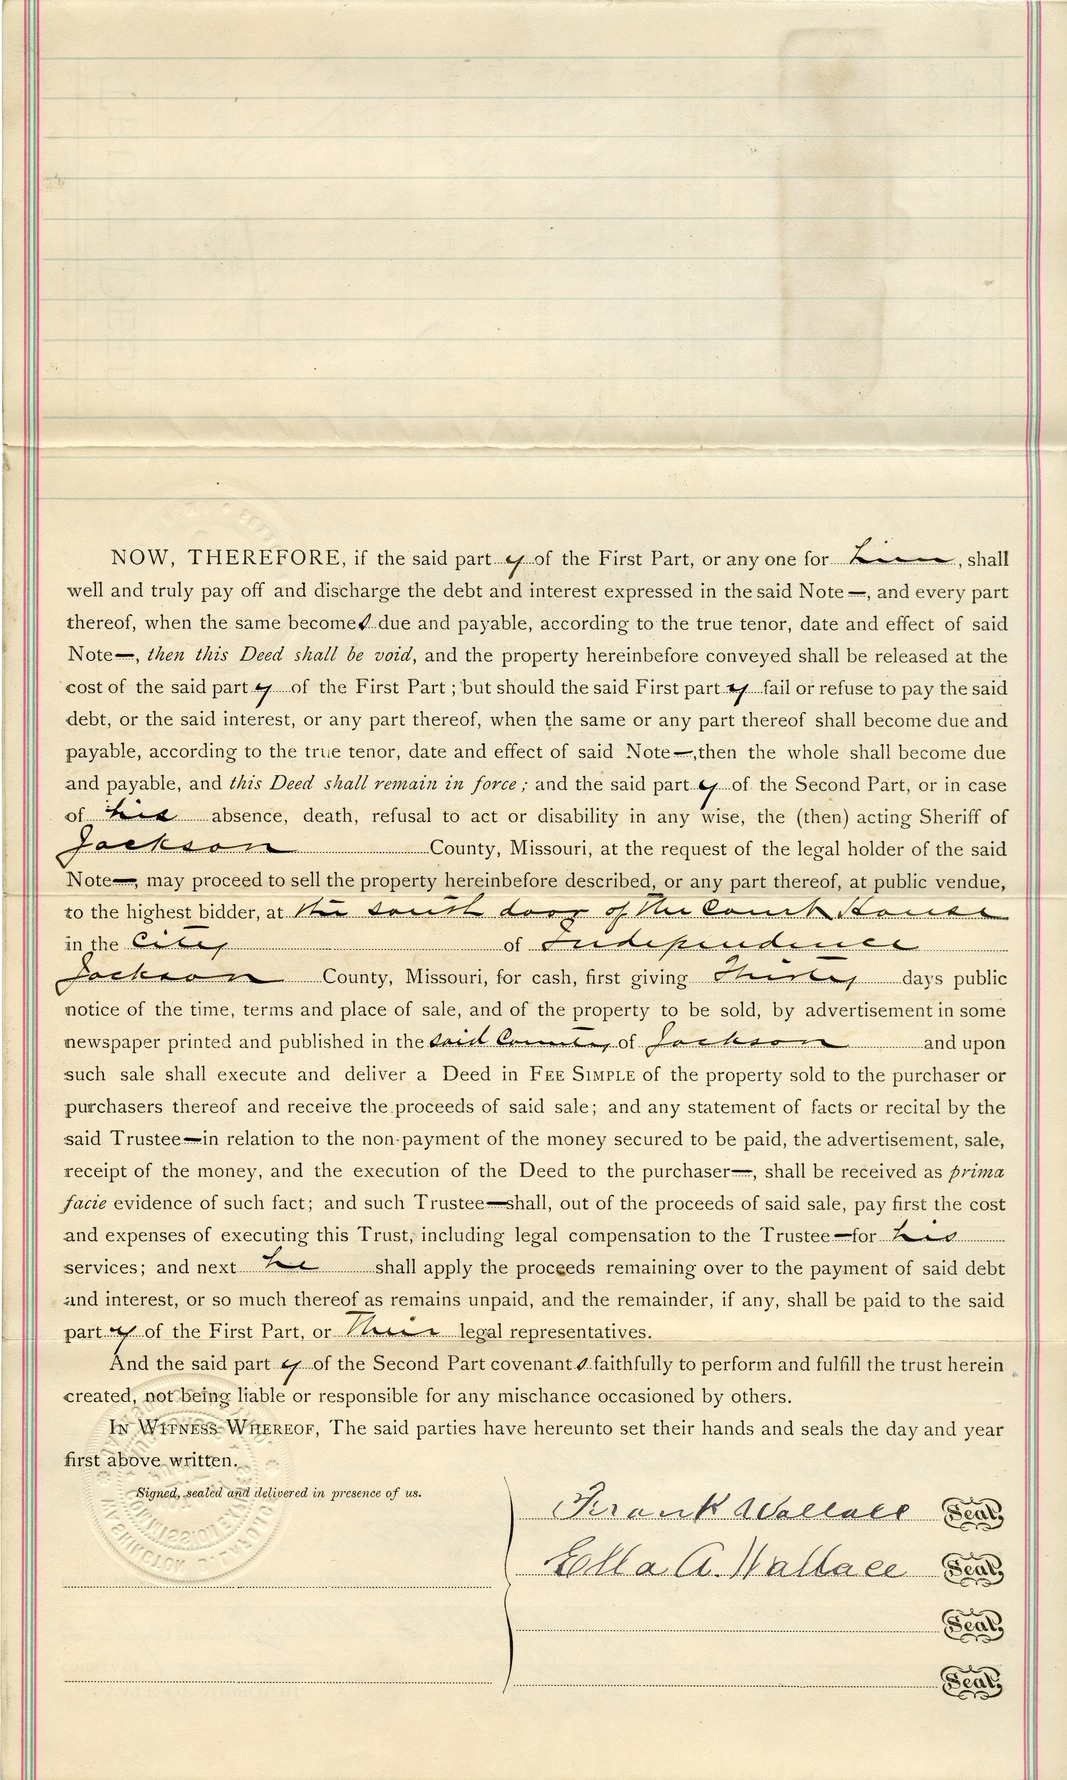 NOW, THEREFORE, if the said part y of the First Part, or any one for him, shall
well and truly pay off and discharge the debt and interest expressed in the said Note—, and every part
thereof, when the same becomes due and payable, according to the true tenor, date and effect of said
Note—, then this Deed shall be void, and the property hereinbefore conveyed shall be released at the
cost of the said part y of the First Part; but should the said First part y fail or refuse to pay the said
debt, or the said interest, or any part thereof, when the same or any part thereof shall become due and
payable, according to the true tenor, date and effect of said Note—, then the whole shall become due
and payable, and this Deed shall remain in force; and the said part y of the Second Part, or in case
of his absence, death, refusal to act or disability in any wise, the (then) acting Sheriff of
Jackson County, Missouri, at the request of the legal holder of the said
Note—, may proceed to sell the property hereinbefore described, or any part thereof, at public vendue,
to the highest bidder, at the south door of the Court House
in the City of Independence
Jackson County, Missouri, for cash, first giving Thirty days public
notice of the time, terms and place of sale, and of the property to be sold, by advertisement in some
newspaper printed and published in the said County of Jackson and upon
such sale shall execute and deliver a Deed in FEE SIMPLE of the property sold to the purchaser or
purchasers thereof and receive the proceeds of said sale; and any statement of facts or recital by the
said Trustee—in relation to the non-payment of the money secured to be paid, the advertisement, sale,
receipt of the money, and the execution of the Deed to the purchaser—, shall be received as prima
facie evidence of such fact; and such Trustee—shall, out of the proceeds of said sale, pay first the cost
and expenses of executing this Trust, including legal compensation to the Trustee—for his
services; and next he shall apply the proceeds remaining over to the payment of said debt
and interest, or so much thereof as remains unpaid, and the remainder, if any, shall be paid to the said
part y of the First Part, or Their legal representatives.
And the said part y of the Second Part covenants faithfully to perform and fulfill the trust herein
created, not being liable or responsible for any mischance occasioned by others.
IN WITNESS WHEREOF, The said parties have hereunto set their hands and seals the day and year
first above written.
Signed, sealed and delivered in presence of us.
Frank Wallace Seal
Ella A. Wallace Seal
Seal
Seal